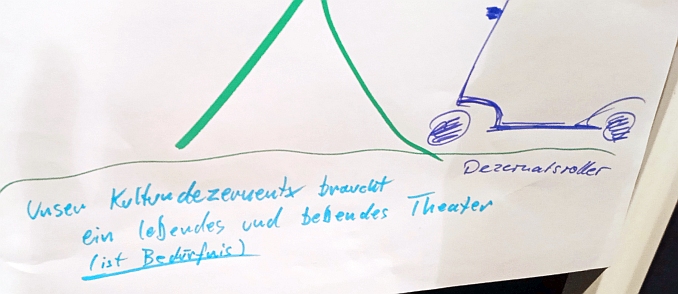 Dezernatsroller
Unser Kulturdezernentx braucht
ein lebendes und bebendes Theater
(ist Bedürfnis)